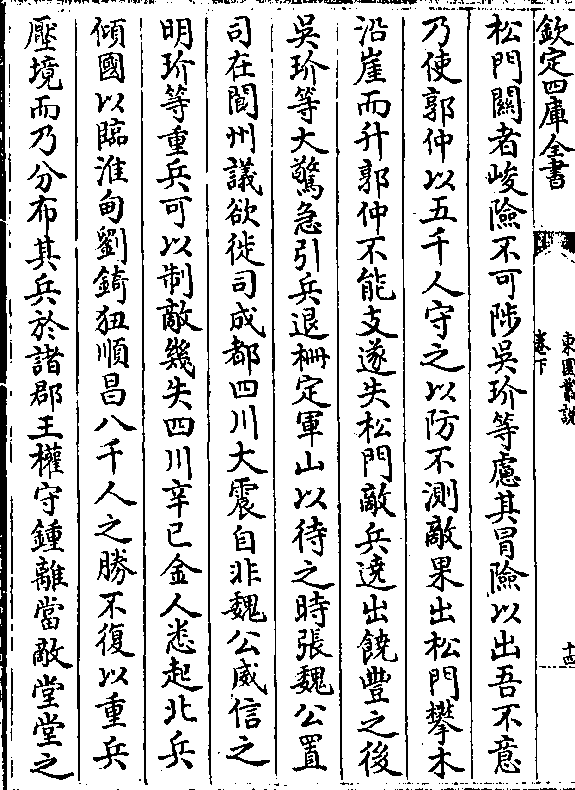 欽定四庫全書
東園叢說
卷下
十四
松門關者峻險不可陟吳玠等慮其冒險以出吾不意
乃使郭仲以五千人守之以防不測敵果出松門攀木
沿崖而升郭仲不能支遂失松門敵兵遶出饒豐之後
吳玠等大驚急引兵退柵定軍山以待之時張魏公置
司在閬州議欲徙司成都四川大震自非魏公威信之
明玠等重兵可以制敵幾失四川辛巳金人悉起北兵
傾國以臨淮甸劉錡狃順昌八千人之勝不復以重兵
壓境而乃分布其兵於諸郡王權守鍾離當敵堂堂之